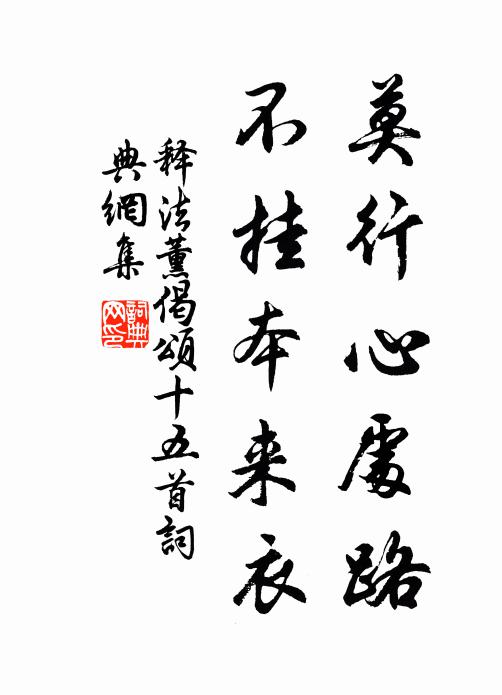 莫行心處路
不挂本来衣
释法薰偈頌十五首詞
典網集
詞典網印